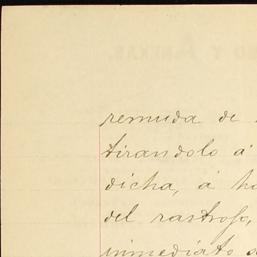 remuda de
tirandolo á
dicha, á
del rastrojo,
inmediato